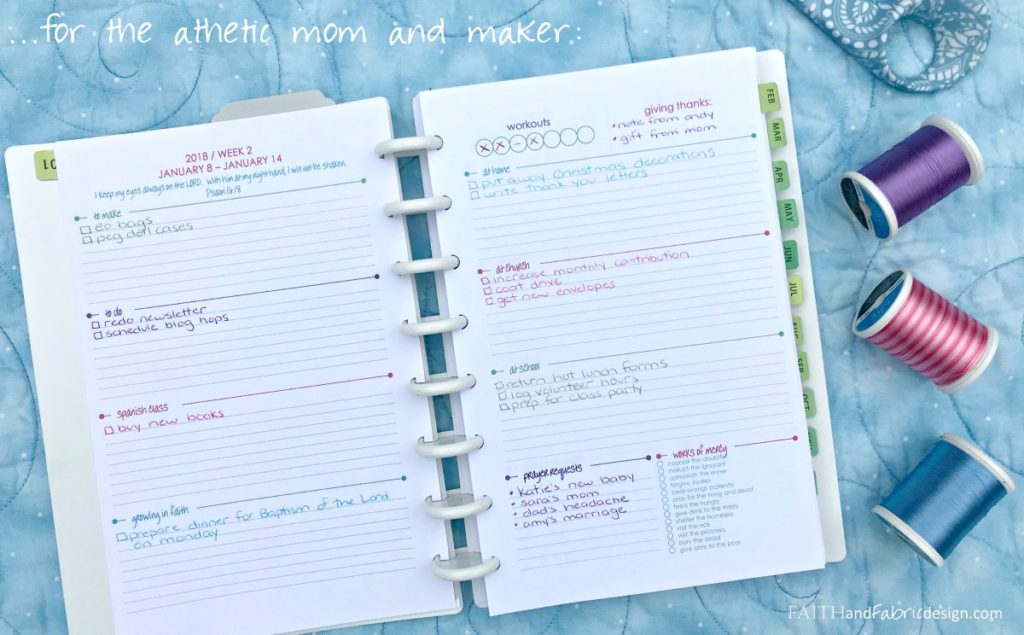 ...for the athetic mom and maker:
01
2018 / WEEK 2
JANUARY 8 – JANUARY 14
I keep my eyes always on the LORD. With him at my right hand, I will not be shaken.
Psalm 16:8
to make
eo bags
peg doll cases
to do
redo newsletter
schedule blog hops
spanish class
buy new books
growing in faith
prepare dinner for Baptism of the Lord
on monday
workouts
x x - x
giving thanks:
• note from andy
• gift from mom
at home
put away Christmas decorations
write thank you letters
at church
increase monthly contribution
coat drive
get new envelopes
at school
return hot lunch forms
log volunteer hours
prep for class party
prayer requests
• katie's new baby
• sara's mom
• dad's headache
• amy's marriage
works of mercy
counsel the doubtful
instruct the ignorant
admonish the sinner
forgive injuries
bear wrongs patiently
pray for the living and dead
feed the hungry
give drink to the thirsty
shelter the homeless
visit the sick
visit the prisoners
bury the dead
give alms to the poor
FEB
MAR
APR
MAY
JUN
JUL
AUG
SEP
OCT
FAITHandFabricdesign.com